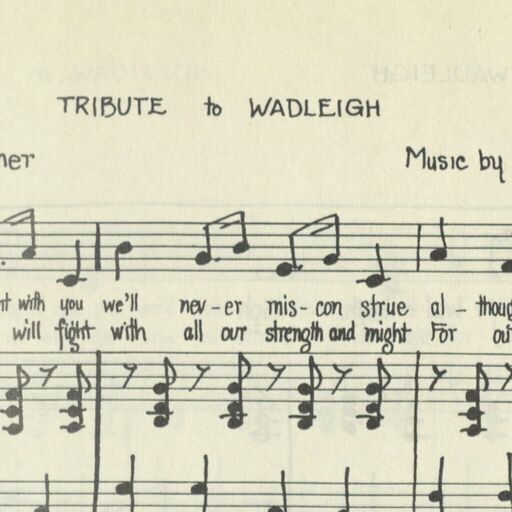 TRIBUTE to WADLEIGH
Music by
with you we'll nev-er mis-con strue al-
will fight with all our strength and might For